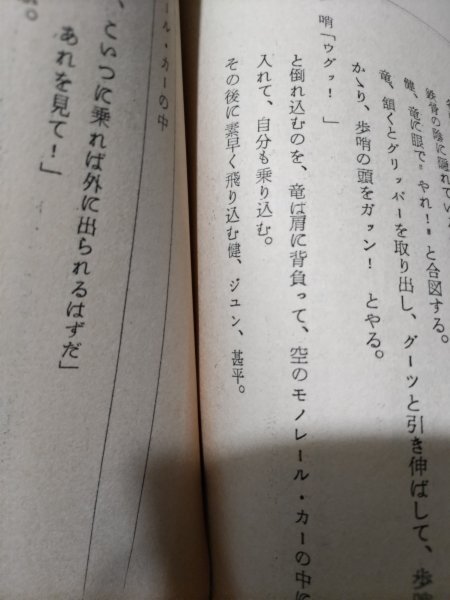 鉄骨の陰に隠れている
健、竜に眼で〝やれ！〟と合図する。
竜、頷くとグリッパーを取り出し、グーツと引き伸ばして、歩哨
かゝり、歩哨の頭をガッン！　とやる。
哨「ウグッ！　」
と倒れ込むのを、竜は肩に背負って、空のモノレール・カーの中に
入れて、自分も乗り込む。
その後に素早く飛り込む健、ジュン、甚平。
ール・カーの中
、といつに乗れば外に出られるはずだ」
あれを見て！」
。